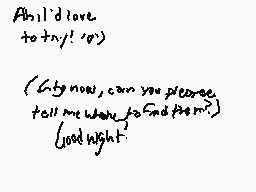 Ah i'd love
to try! :o)
(Gtg now, can you please
tell me where to find them?)
Good night!